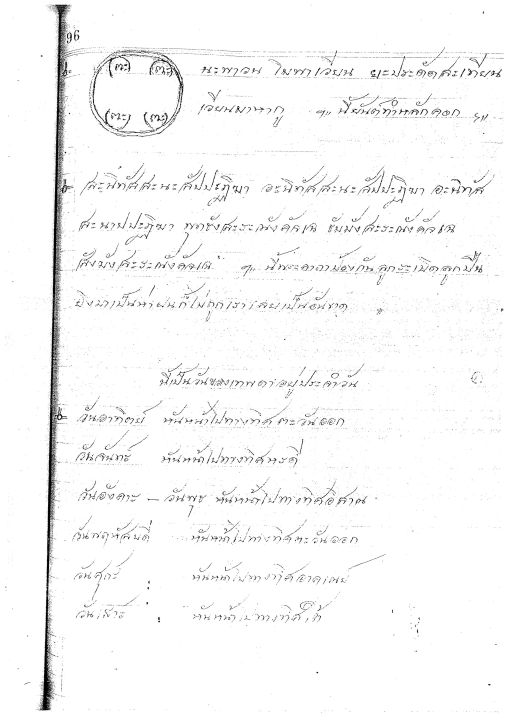 96
(ฅะ) (ฅะ)
(ฅะ) (ฅะ)
นะพาวน โมพาเวียน ยะประดัดสะเทียน
เวียนมาหากู ๆ นี้ยันต์ทำหลักดอก ฯ
สะนาปปะฏิฆา พุทธังสะระณังคัจเฉ ธัมมังสะระณังคัจเฉ
สังฆังสะระณังคัจเฉ ๆ นี้พระคาถาป้องกันลูกระเบิดลูกปืน
ยิงมาเป็นห่าฝนก็ไม่ถูกเราเลยเป็นอันขาด
นี้เป็นวันของเทพดาอยู่ประจำวัน
วันอาทิตย์ หันหน้าไปทางทิศตะวันออก
วันจันทร์ หันหน้าไปทางทิศหรดี
วันอังคาร – วันพุธ หันหน้าไปทางทิศอิสาณ
วันพฤหัสบดี หันหน้าไปทางทิศตะวันออก
วันศุกร์ : หันหน้าไปทางทิศอาคเณย์
วันเสาร์ : หันหน้าไปทางทิศใต้